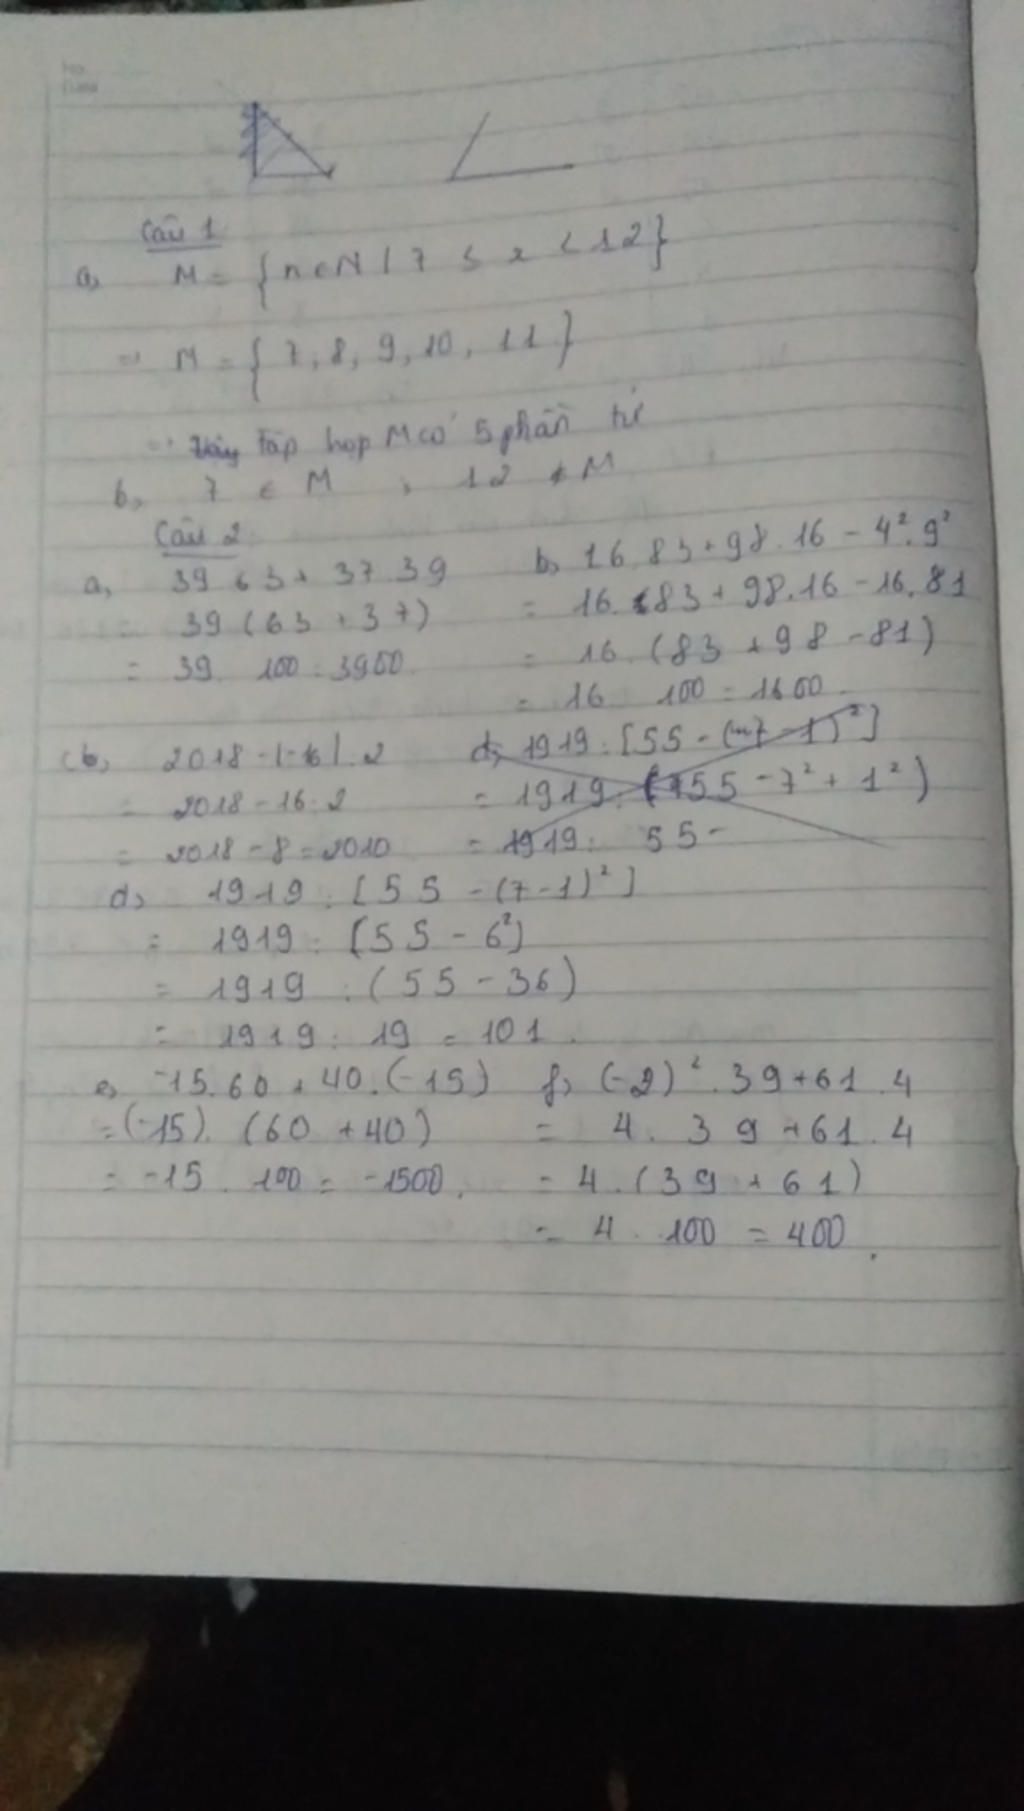 Câu 1
a, M = { n ∈ N | 7 ≤ x < 12 }
=> M = { 7, 8, 9, 10, 11 }
=> Vậy tập hợp M có 5 phần tử
b, 7 ∈ M , 12 ∉ M
Câu 2
a, 39 63 + 37 39
= 39 ( 63 + 37 )
= 39 . 100 = 3900
b, 16.83 + 98.16 - 4².9²
= 16.83 + 98.16 - 16.81
= 16.(83 + 98 - 81)
= 16 100 = 1600
2018 - |-16| : 2
= 2018 - 16 : 2
= 2018 - 8 = 2010
d, 1919 : [55 - (7 - 1)²]
= 1919 : (55 - 7² + 1²)
= 1919 : 55 -
d, 1919 : [55 - (7 - 1)²]
= 1919 : [55 - 6²]
= 1919 : (55 - 36)
= 1919 : 19 = 101.
e, -15.60 + 40.(-15)
= (-15).(60 + 40)
= -15 . 100 = -1500.
f, (-2)².39 + 61.4
= 4.39 + 61.4
= 4.(39 + 61)
= 4.100 = 400.